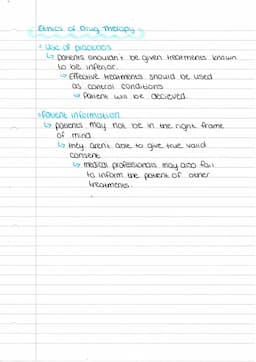 Ethics of Drug Therapy
• Use of placebos
↳ patients shouldn't be given treatments known
to be inferior.
⇒ Effective treatments should be used
as control conditions
⇒ Patient will be decieved.
• Patient information
↳ patients may not be in the right frame
of mind
↳ they aren't able to give true valid
consent
↳ medical professionals may also fail
to inform the patient of other
treatments.